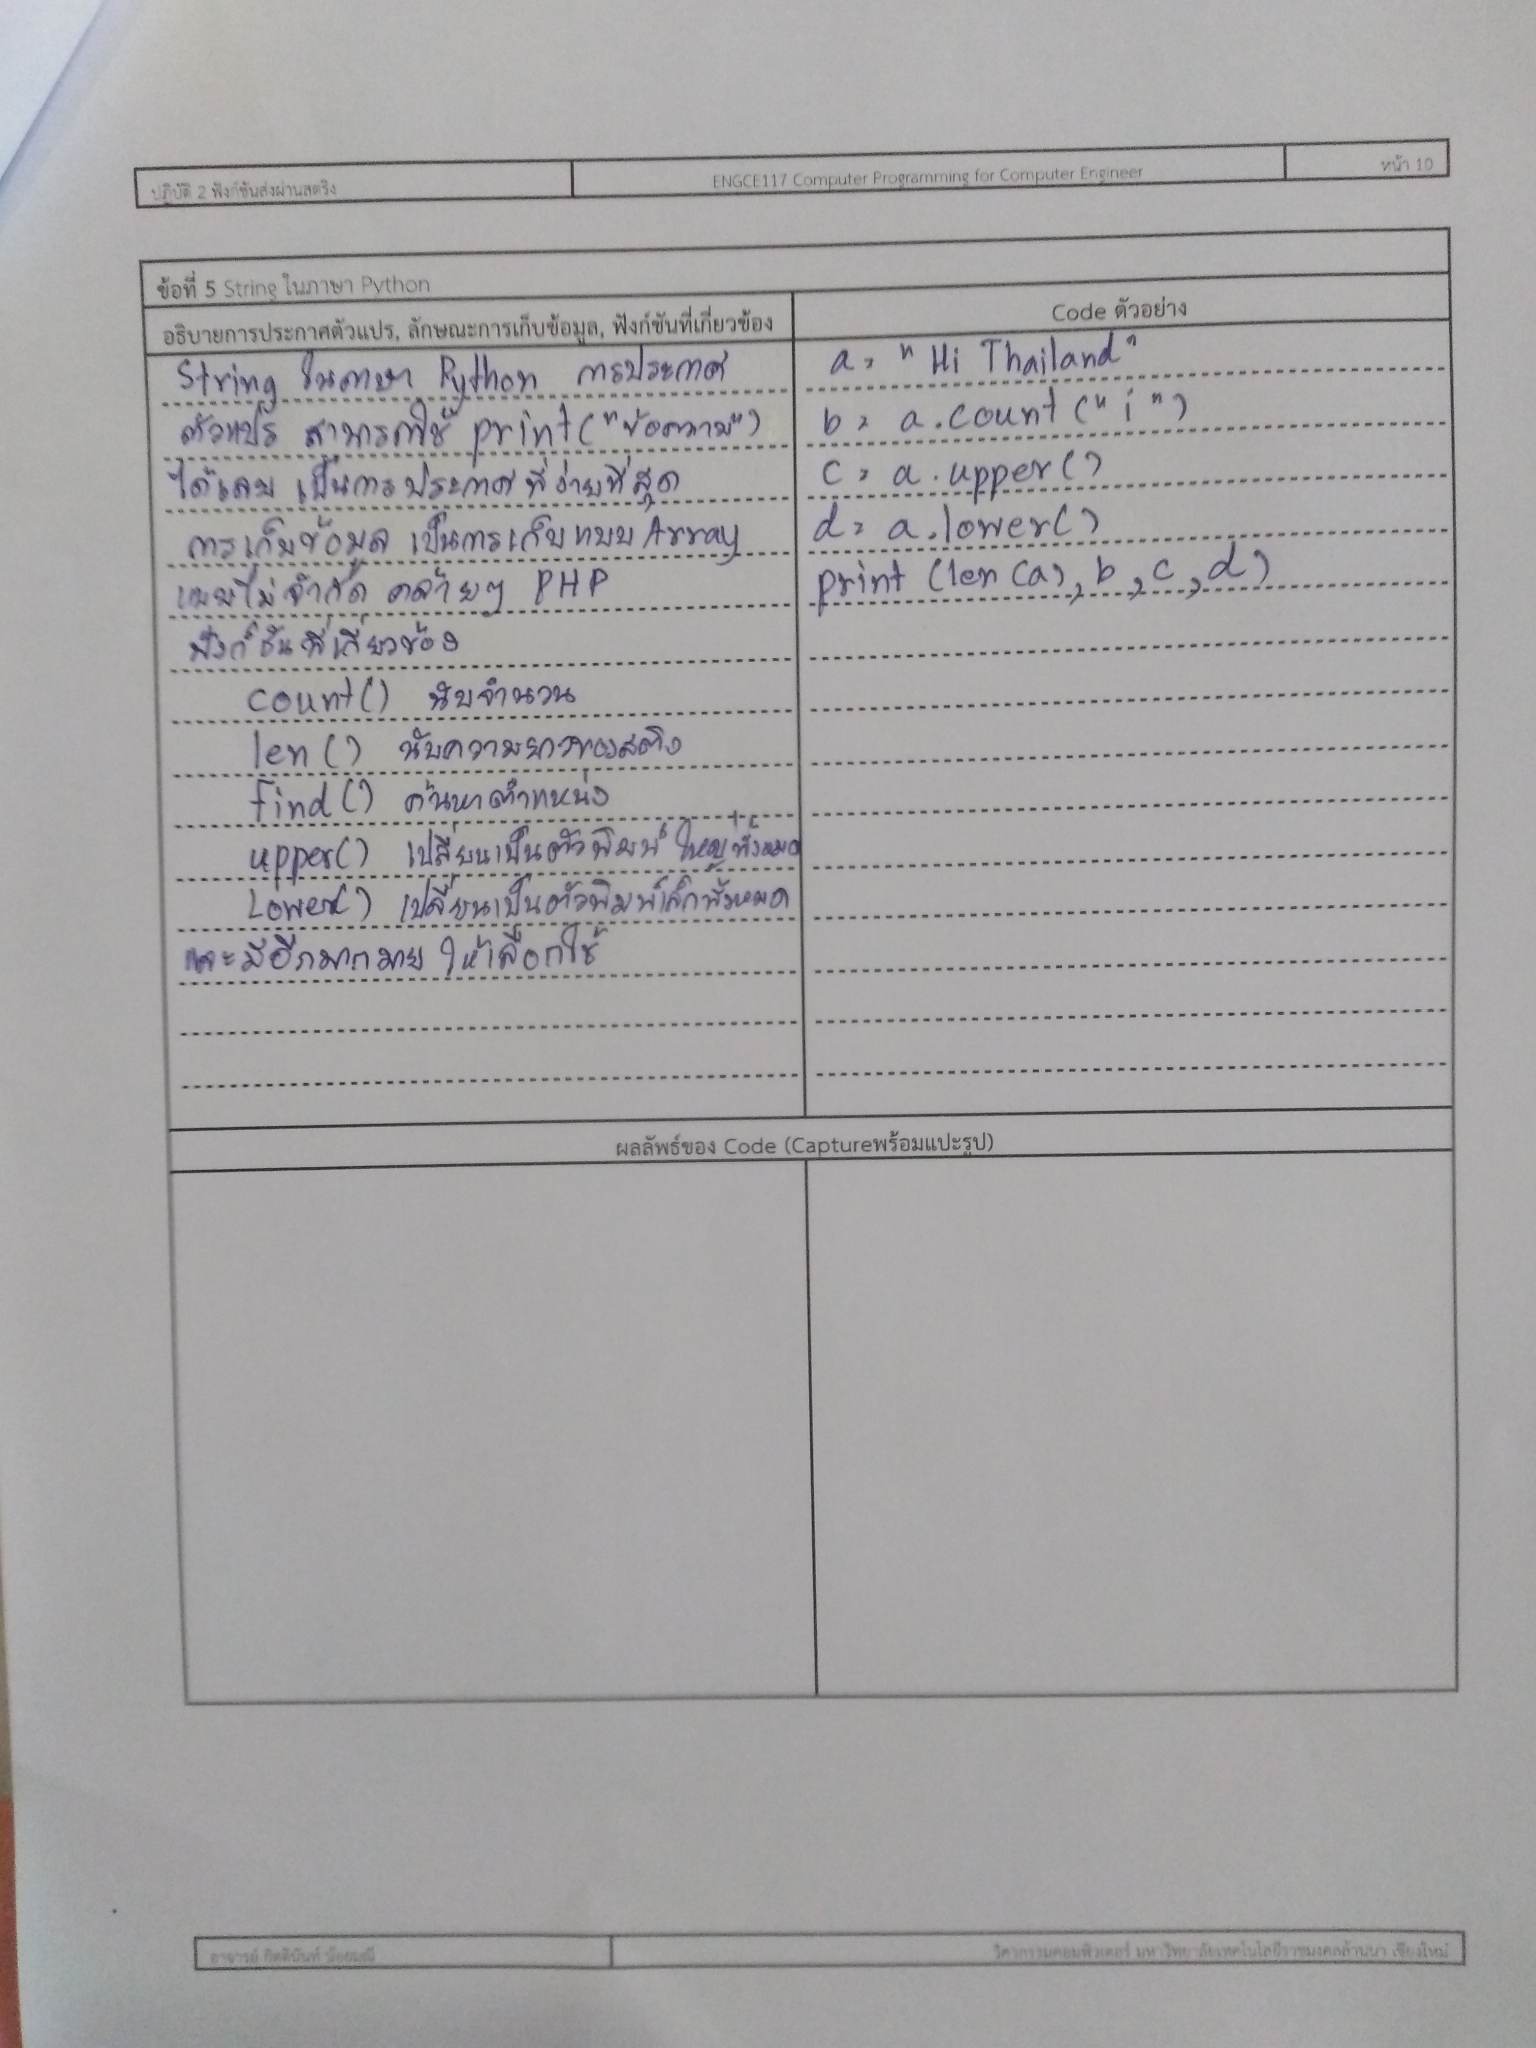 ปฏิบัติ 2 ฟังก์ชันส่งผ่านสตริง
ENGCE117 Computer Programming for Computer Engineer
หน้า 10
ข้อที่ 5 String ในภาษา Python
อธิบายการประกาศตัวแปร, ลักษณะการเก็บข้อมูล, ฟังก์ชันที่เกี่ยวข้อง
String ในภาษา Python การประกาศ
ตัวแปร สามารถใช้ print("ข้อความ")
ได้เลย เป็นการประกาศที่ง่ายที่สุด
การเก็บข้อมูล เป็นการเก็บแบบ Array
แบบไม่จำกัด คล้ายๆ PHP
ฟังก์ชันที่เกี่ยวข้อง
count() นับจำนวน
len() นับความยาวของสตริง
find() ค้นหาตำแหน่ง
upper() เปลี่ยนเป็นตัวพิมพ์ใหญ่ทั้งหมด
Lower() เปลี่ยนเป็นตัวพิมพ์เล็กทั้งหมด
และมีอีกมากมาย ให้เลือกใช้
Code ตัวอย่าง
a = "Hi Thailand"
b = a.count("i")
c = a.upper()
d = a.lower()
print(len(a), b, c, d)
ผลลัพธ์ของ Code (Captureพร้อมแปะรูป)
อาจารย์ กิตตินันท์ น้อยมณี
วิศวกรรมคอมพิวเตอร์ มหาวิทยาลัยเทคโนโลยีราชมงคลล้านนา เชียงใหม่